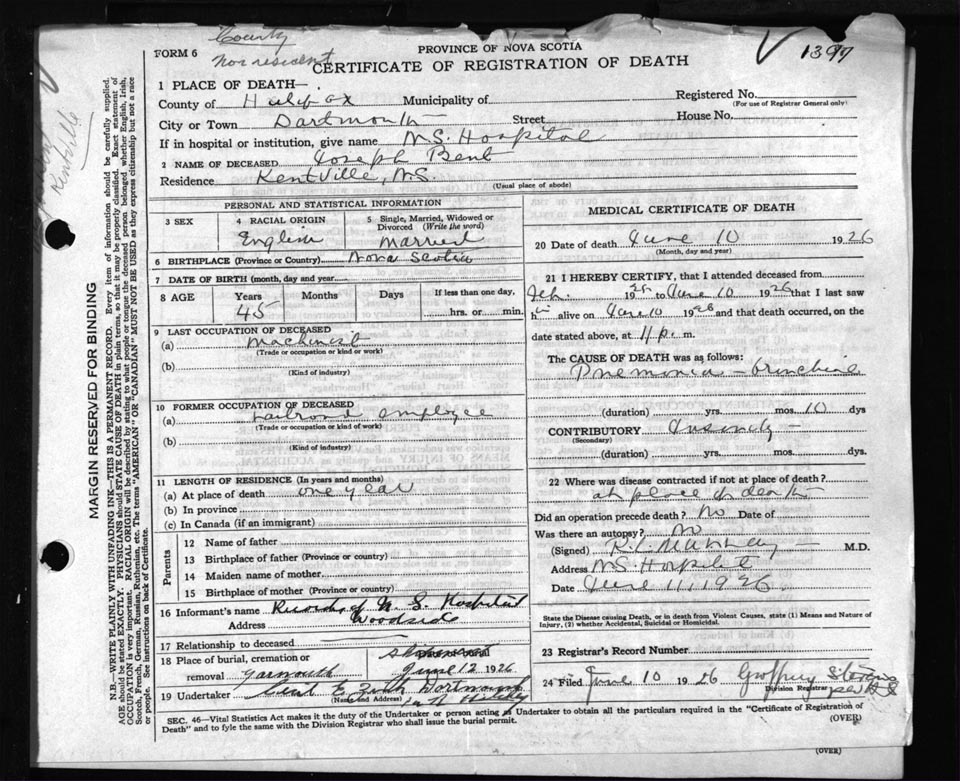 County
Non resident
1397
FORM 6
PROVINCE OF NOVA SCOTIA
CERTIFICATE OF REGISTRATION OF DEATH
1 PLACE OF DEATH—
County of Halifax Municipality of
Registered No.
(For use of Registrar General only)
City or Town Dartmouth Street House No.
If in hospital or institution, give name N.S. Hospital
2 NAME OF DECEASED Joseph Bent
Residence Kentville, N.S.
(Usual place of abode)
PERSONAL AND STATISTICAL INFORMATION
3 SEX 4 RACIAL ORIGIN 5 Single, Married, Widowed or Divorced (Write the word)
English Married
6 BIRTHPLACE (Province or Country) Nova Scotia
7 DATE OF BIRTH (month, day and year)
8 AGE Years Months Days If less than one day,
45 hrs. or min.
9 LAST OCCUPATION OF DECEASED
(a) Machinist
(Trade or occupation or kind or work)
(b)
(Kind of industry)
10 FORMER OCCUPATION OF DECEASED
(a) Railroad employee
(Trade or occupation or kind of work)
(b)
(Kind of industry)
11 LENGTH OF RESIDENCE (In years and months)
(a) At place of death one year
(b) In province
(c) In Canada (if an immigrant)
Parents
12 Name of father
13 Birthplace of father (Province or country)
14 Maiden name of mother
15 Birthplace of mother (Province or country)
16 Informant's name Records of N. S. Hospital
Address Woodside
17 Relationship to deceased
18 Place of burial, cremation or
removal Yarmouth June 12 1926
19 Undertaker Dartmouth
(Name and Address)
MEDICAL CERTIFICATE OF DEATH
20 Date of death June 10 1926
(Month, day and year)
21 I HEREBY CERTIFY, that I attended deceased from
Feb. 1925 to June 10 1926 that I last saw
him alive on June 10 1926 and that death occurred, on the
date stated above, at 11 p. m.
The CAUSE OF DEATH was as follows:
Pnemonia –
(duration) yrs. mos. 10 dys
CONTRIBUTORY Insanity –
(Secondary)
(duration) yrs. mos. dys.
22 Where was disease contracted if not at place of death?
at place of death
Did an operation precede death? No Date of
Was there an autopsy? No
(Signed) R. Murray M.D.
Address N.S. Hospital
Date June 11, 1926.
State the Disease causing Death, or in death from Violent Causes, state (1) Means and Nature of
Injury, (2) whether Accidental, Suicidal or Homicidal.
23 Registrar's Record Number
24 Filed June 10 1926 Stevens
Division Registrar
SEC. 46—Vital Statistics Act makes it the duty of the Undertaker or person acting as Undertaker to obtain all the particulars required in the "Certificate of Registration of
Death" and to fyle the same with the Division Registrar who shall issue the burial permit. (OVER)
(OVER)
MARGIN RESERVED FOR BINDING
N.B.—WRITE PLAINLY WITH UNFADING INK—THIS IS A PERMANENT RECORD. Every item of information should be carefully supplied.
AGE should be stated EXACTLY. PHYSICIANS should STATE CAUSE OF DEATH in plain terms, so that it may be properly classified. Exact statement of
OCCUPATION is very important. RACIAL ORIGIN will be described by stating to what people or tongue the deceased person belonged, whether English, Irish,
Scotch, French, German, Russian, Ruthenian, etc. The terms "AMERICAN" OR "CANADIAN" MUST NOT BE USED as they express citizenship but not a race
or people. See instructions on back of Certificate.
Kentville